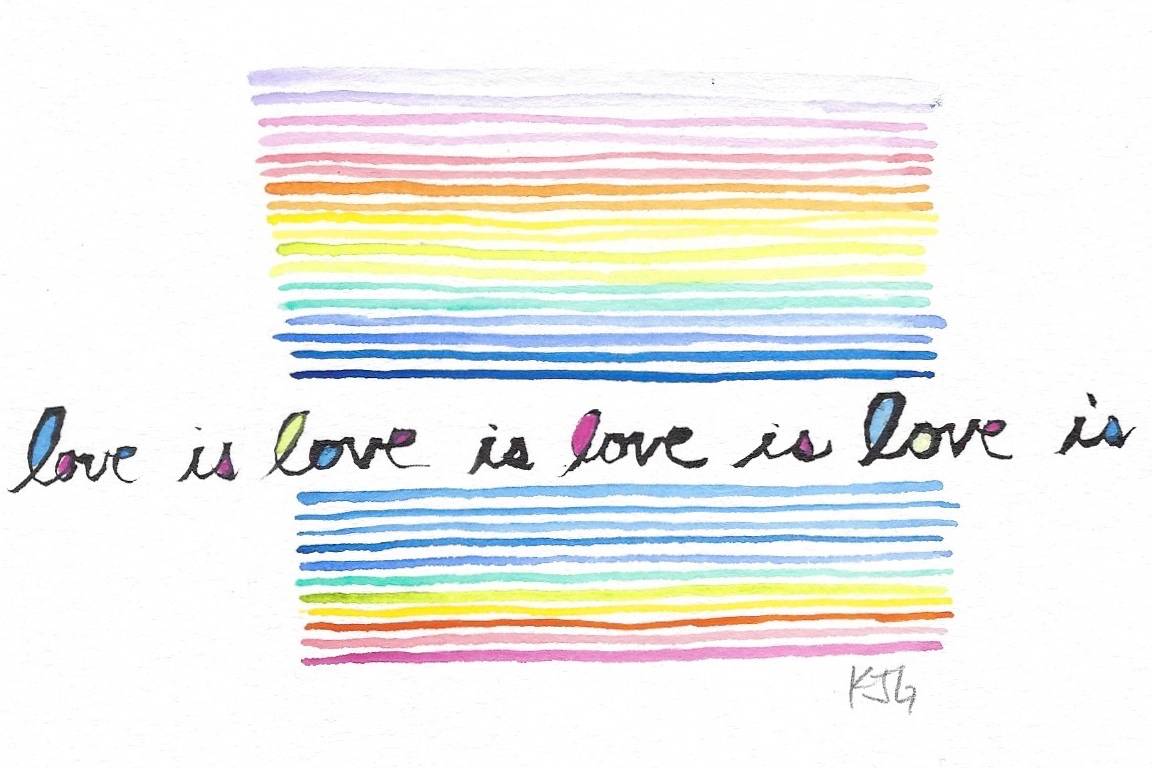 love is love is love is love is
KJG